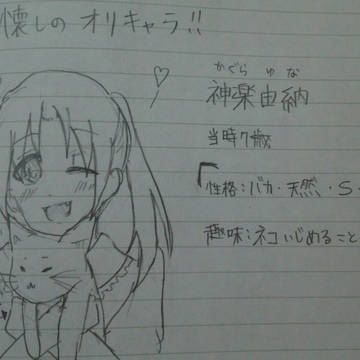 懐しの オリキャラ!!
かぐら ゆな
神楽由納
当時7歳
性格:バカ・天然・S・
趣味:ネコいじめること